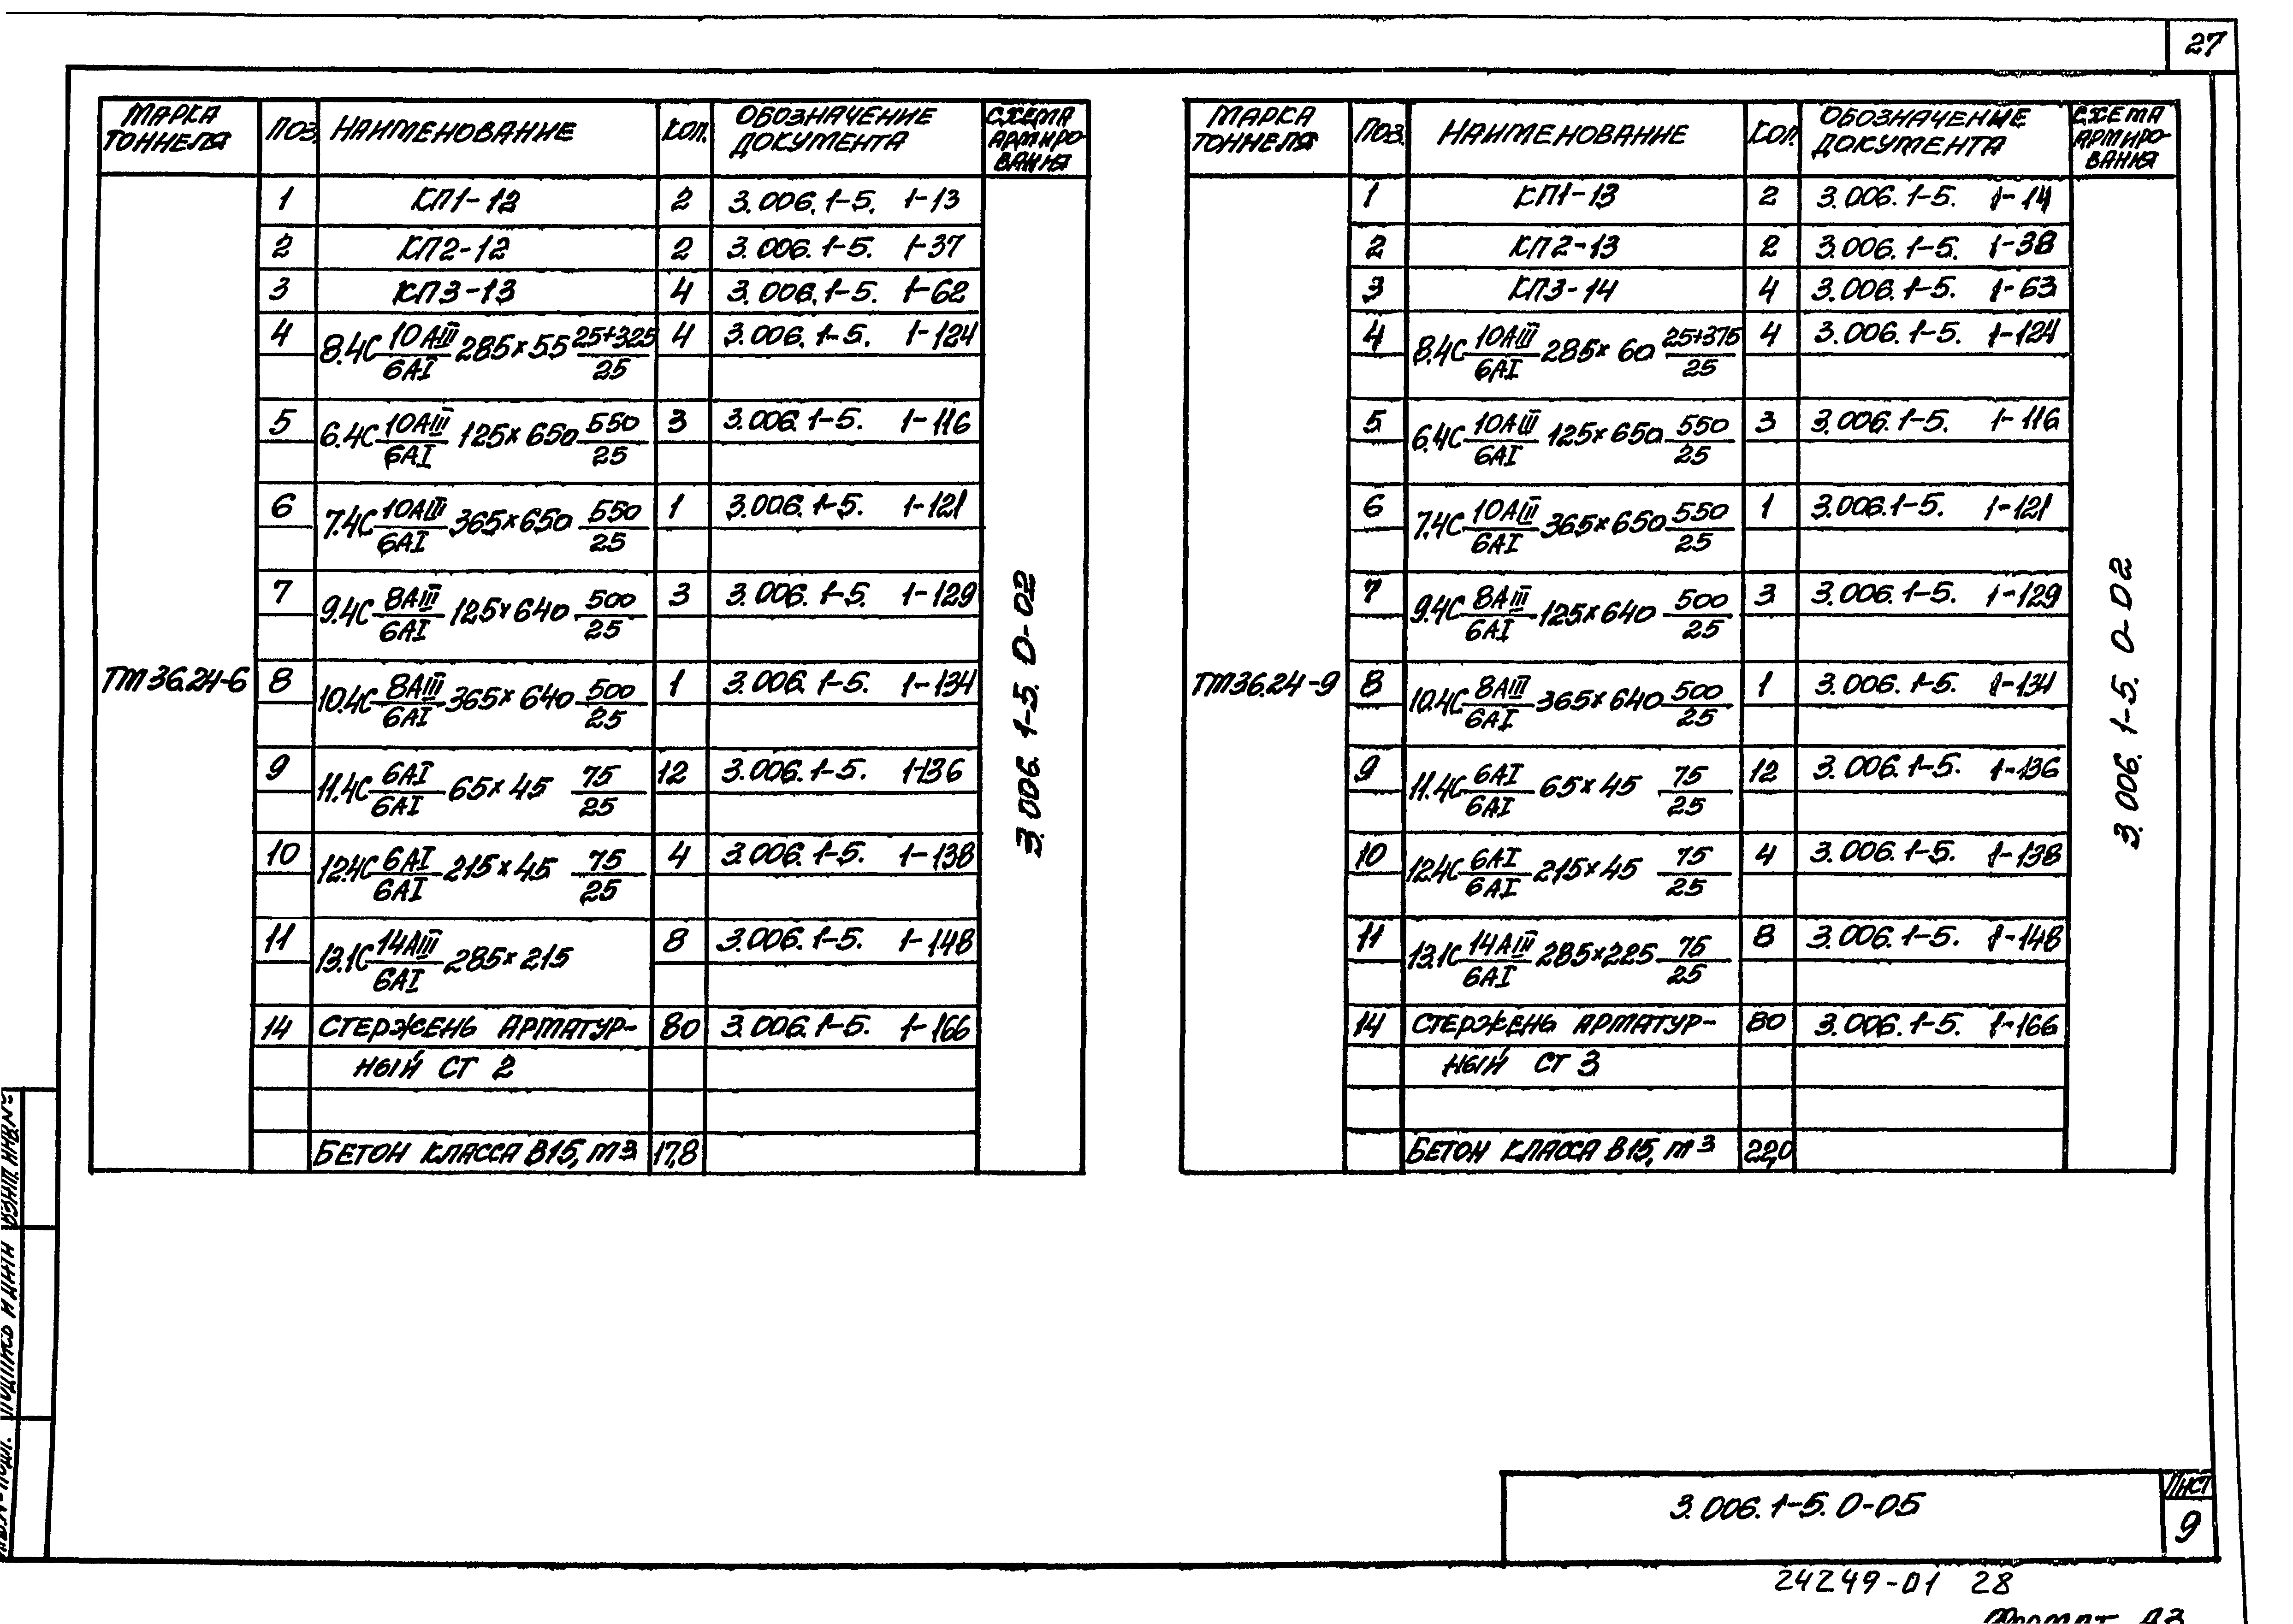 27
МАРКА ТОННЕЛЯ ПОЗ. НАИМЕНОВАНИЕ КОЛ. ОБОЗНАЧЕНИЕ ДОКУМЕНТА СХЕМА АРМИРО-ВАНИЯ
ТМ 36.24-6
1 КП1-12 2 3.006.1-5. 1-13
2 КП2-12 2 3.006.1-5. 1-37
3 КП3-13 4 3.006.1-5. 1-62
4 8.4С 10АIII/6АI 285×55 25+325/25 4 3.006.1-5. 1-124
5 6.4С 10АIII/6АI 125×650 550/25 3 3.006.1-5. 1-116
6 7.4С 10АIII/6АI 365×650 550/25 1 3.006.1-5. 1-121
7 9.4С 8АIII/6АI 125×640 500/25 3 3.006.1-5. 1-129
8 10.4С 8АIII/6АI 365×640 500/25 1 3.006.1-5. 1-134
9 11.4С 6АI/6АI 65×45 75/25 12 3.006.1-5. 1-136
10 12.4С 6АI/6АI 215×45 75/25 4 3.006.1-5. 1-138
11 13.1С 14АIII/6АI 285×215 8 3.006.1-5. 1-148
14 СТЕРЖЕНЬ АРМАТУР- 80 3.006.1-5. 1-166
НЫЙ СТ 2
БЕТОН КЛАССА В15, м3 17,8
3.006.1-5.0-02
МАРКА ТОННЕЛЯ ПОЗ. НАИМЕНОВАНИЕ КОЛ. ОБОЗНАЧЕНИЕ ДОКУМЕНТА СХЕМА АРМИРО-ВАНИЯ
ТМ 36.24-9
1 КП1-13 2 3.006.1-5. 1-14
2 КП2-13 2 3.006.1-5. 1-38
3 КП3-14 4 3.006.1-5. 1-63
4 8.4С 10АIII/6АI 285×60 25+375/25 4 3.006.1-5. 1-124
5 6.4С 10АIII/6АI 125×650 550/25 3 3.006.1-5. 1-116
6 7.4С 10АIII/6АI 365×650 550/25 1 3.006.1-5. 1-121
7 9.4С 8АIII/6АI 125×640 500/25 3 3.006.1-5. 1-129
8 10.4С 8АIII/6АI 365×640 500/25 1 3.006.1-5. 1-134
9 11.4С 6АI/6АI 65×45 75/25 12 3.006.1-5. 1-136
10 12.4С 6АI/6АI 215×45 75/25 4 3.006.1-5. 1-138
11 13.1С 14АIII/6АI 285×225 75/25 8 3.006.1-5. 1-148
14 СТЕРЖЕНЬ АРМАТУР- 80 3.006.1-5. 1-166
НЫЙ СТ 3
БЕТОН КЛАССА В15, м3 22,0
3.006.1-5.0-02
3.006.1-5.0-05
ЛИСТ
9
24249-01 28
ФОРМАТ А3